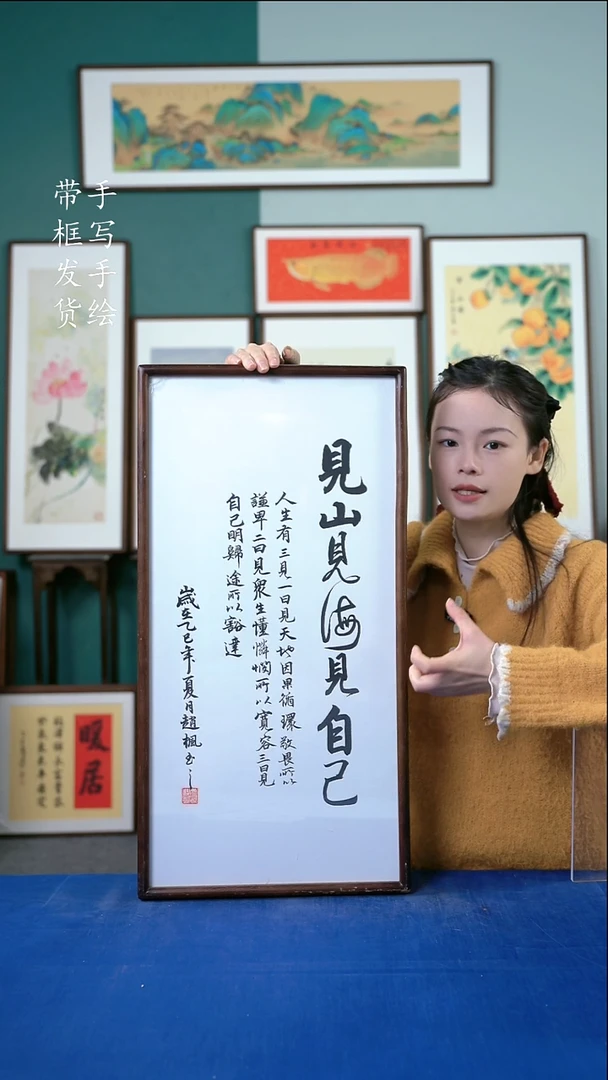 手写手绘
带框发货
見山見海見自己
人生有三見一曰見天地因果循環敬畏所以
謙卑二曰見衆生懂憐憫所以寬容三曰見
自己明歸途所以豁達
歲在乙巳年夏月趙楓書之
暖居